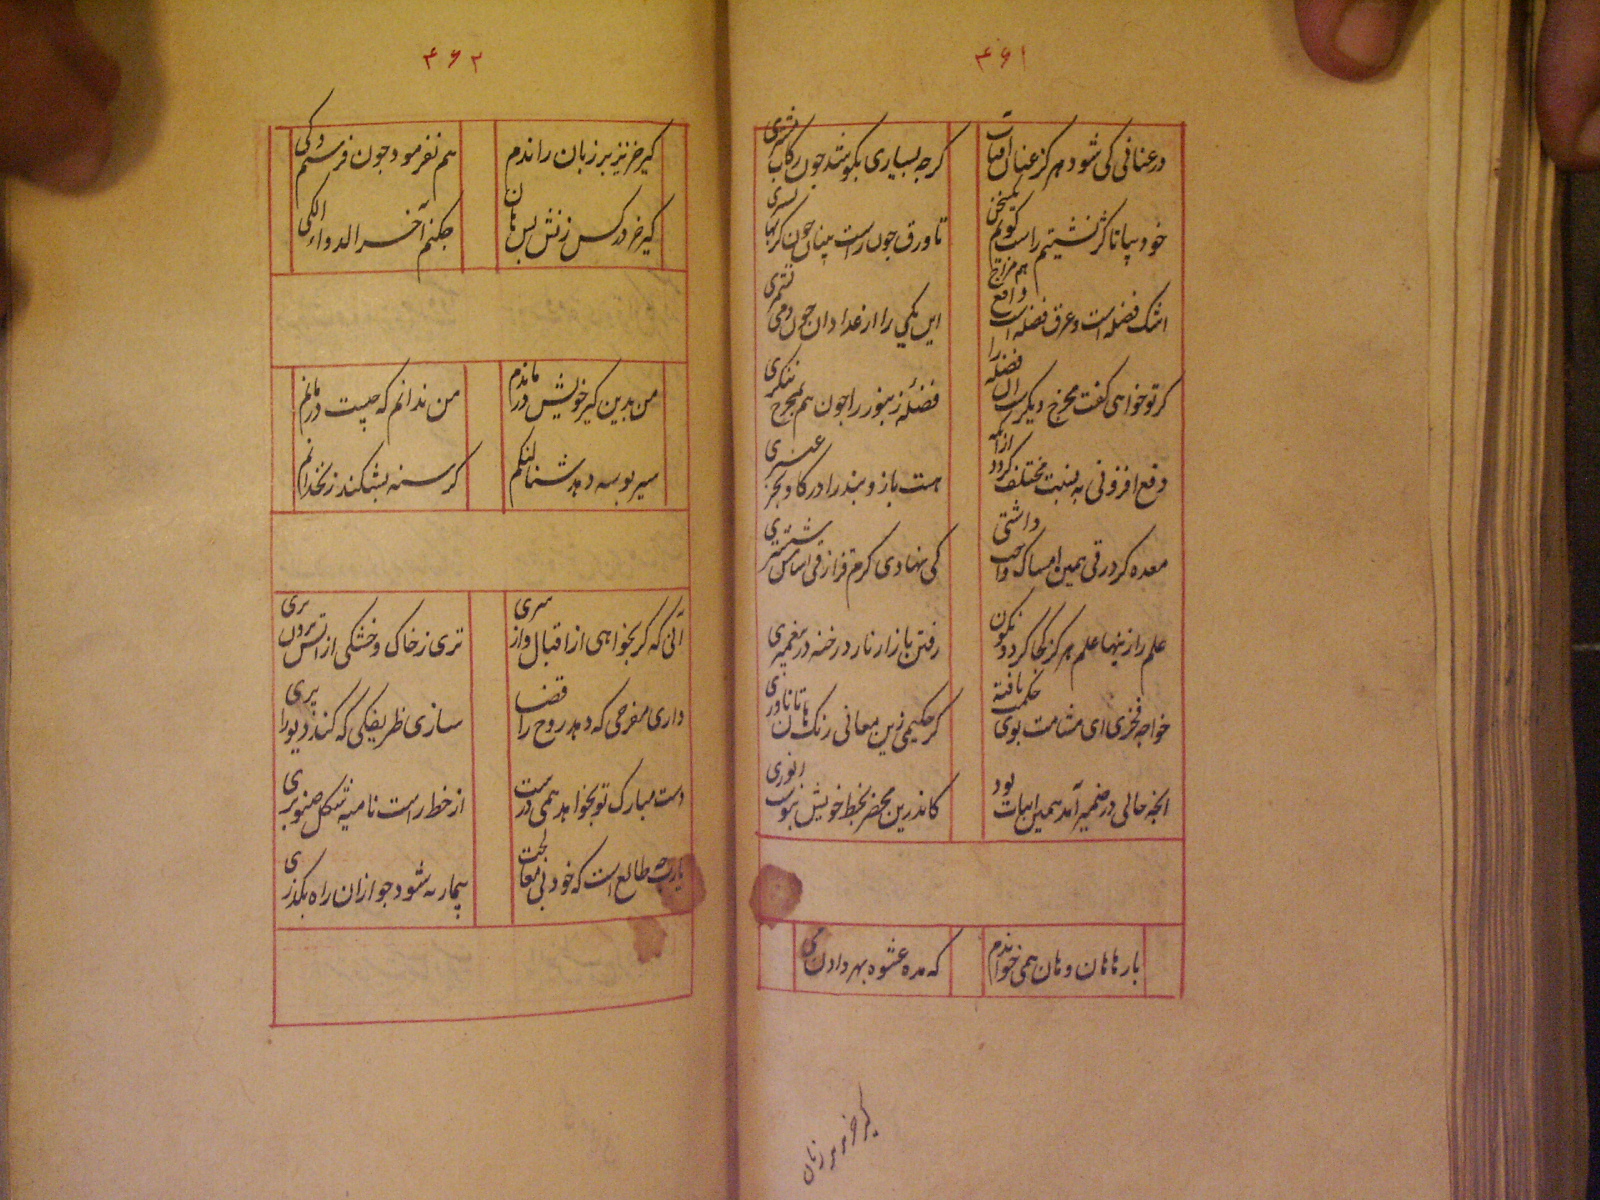 ۴۶۱
در عنانی کی شود هرکز عنان افتاب
کرجه بسیاری بکوشد جون رکاب
خود بیا تا کژ نشینیم راست کویم یکسخن
تا ورق جون راست بینان جون
اشک فضله است و عرق فضله است
این یکی را از غدا دان
کر تو خواهی کفت مخرج دیکرست ان فضله را
فضلهٔ زنبور را جون هم بمخرج ننکری
دفع افزونی به نسبت مختلف کردد
هست باز و بند را در کاو بحر عنبری
معده کر در قی همین امساک واجب داشتی
کی نهادی کرم قز از قی اساس ششتری
علم را از بنها علم هرکز کجا کردد نکون
رفتن بازار نار در خنه در پیغمبری
خواجه فخری ای مشامت بوی حکمت یافته
کر حکیمی زین معانی رنک
انجه حالی در ضمیر آمد همین ابیات بود
کاندرین محضر بخط خویش بنوشت انوری
بارها هان و هان همی خواندم
که مده عشوه بهر دادن کی
کیر خر بر زبان
۴۶۲
کیر خر نیز بر زبان راندم
هم نفرمود جون فرستم وکی
کیر خر در کس زنش بس هان
جکنم آخر الدواء الکی
من بدین کیر خویش درماندم
من ندانم که جیست درمانم
سیر بوسه دهد شما لنکم
کرسنه بشکند زنخدانم
آنی که کر بخواهی از اقبال واز سری
تری ز خاک و خشکی از آتش بردن بری
داری مفرحی که دهد روح را قضا
سازی ظریفکی که کند دیو را بری
دست مبارک تو بخواهد همی درست
از خط راست نامیه شکل صنوبری
یارب جه طالع است که خود بی معالجت
بیمار به شود جو ازان راه بکذری